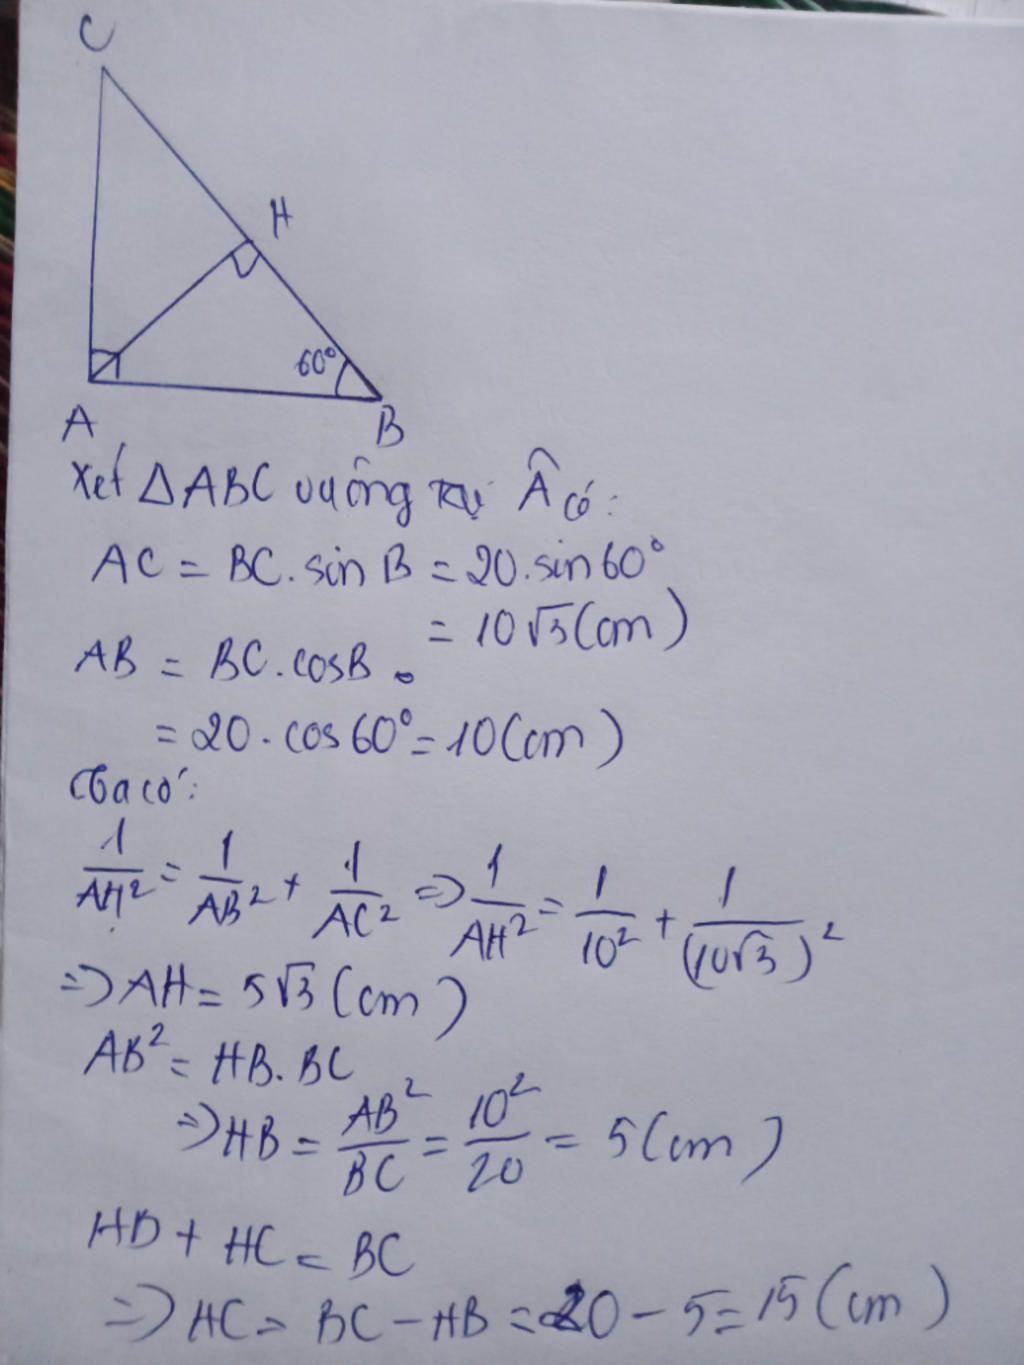 C
H
60°
A
B
Xét △ABC vuông tại Â có:
AC = BC.sin B = 20.sin60°
= 10√3(cm)
AB = BC.cosB
= 20.cos60° = 10(cm)
Ta có:
1/AH² = 1/AB² + 1/AC² => 1/AH² = 1/10² + 1/(10√3)²
=> AH = 5√3 (cm)
AB² = HB.BC
=> HB = AB²/BC = 10²/20 = 5(cm)
HB + HC = BC
=> HC = BC - HB = 20 - 5 = 15(cm)